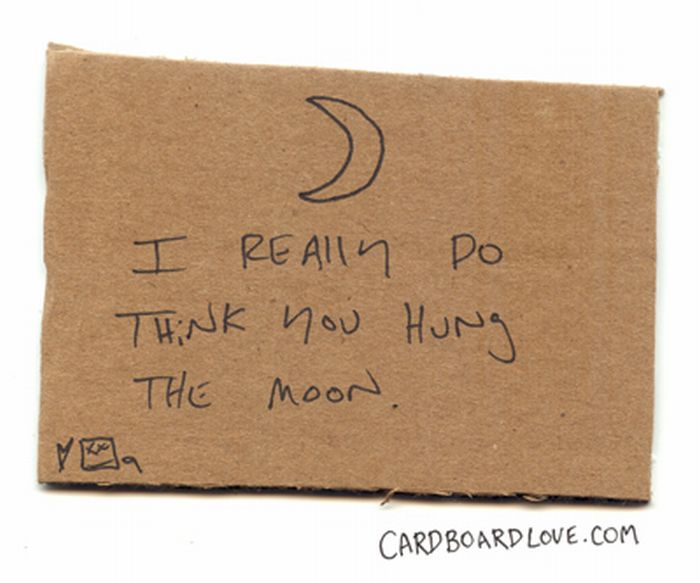 I REAlly DO
THiNK you HuNg
THE MOON.
CARDBOARDLOVE.COM